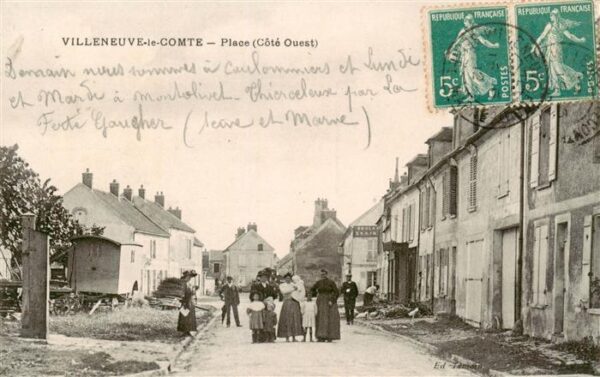 VILLENEUVE-le-COMTE — Place (Côté Ouest)
REPUBLIQUE FRANÇAISE
5c
POSTES
REPUBLIQUE FRANÇAISE
5c
POSTES
Demain nous sommes à Coulommiers et Lundi
et Mardi à Montolivet par La
Ferté Gaucher (Seine et Marne)